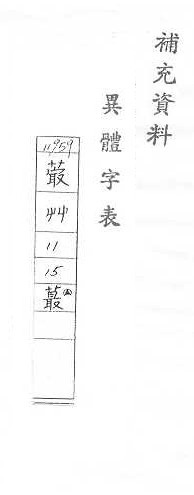 補充資料
異體字表
11959
艸
11
15
蕞